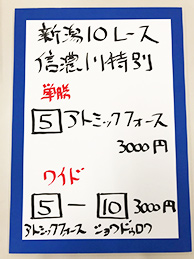 新潟10レース
信濃川特別
単勝
5 アトミックフォース
3000円
ワイド
5 ー 10 3000円
アトミックフォース ジョウドゥロウ